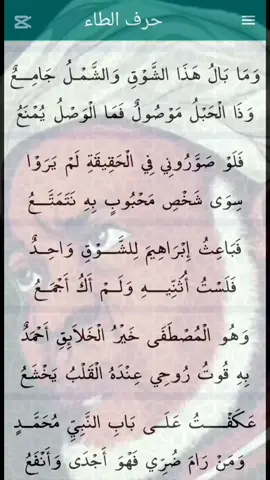 حرف الطاء
وَمَا بَالُ هَذَا الشَّوْقِ وَالشَّمْـلُ جَامِـعٌ
وَذَا الْحَبْلُ مَوْصُولٌ فَمَا الْوَصْلُ يُمْنَعُ
فَلَوْ صَوَّرُونِي فِي الْحَقِيقَةِ لَمْ يَرَوْا
سِوَى شَخْصِ مَحْبُوبٍ بِهِ نَتَمَتَّــعُ
فَبَاعِثُ إِبْرَاهِيمَ لِلشَّــوْقِ وَاحِـدٌ
فَلَسْتُ أُثَنِّيــهِ وَلَــمْ أَكُ أَجْمَـعُ
وَهُوَ الْمُصْطَفَى خَيْرُ الْخَلَايِقِ أَحْمَدٌ
بِهِ قُوتُ رُوحِي عِنْدَهُ الْقَلْبُ يَخْشَعُ
عَكَفْــتُ عَلَــى بَابِ النَّبِيِّ مُحَمَّـدٍ
وَمَنْ رَامَ ضُرِّي فَهْوَ أَجْدَى وَأَنْفَعُ